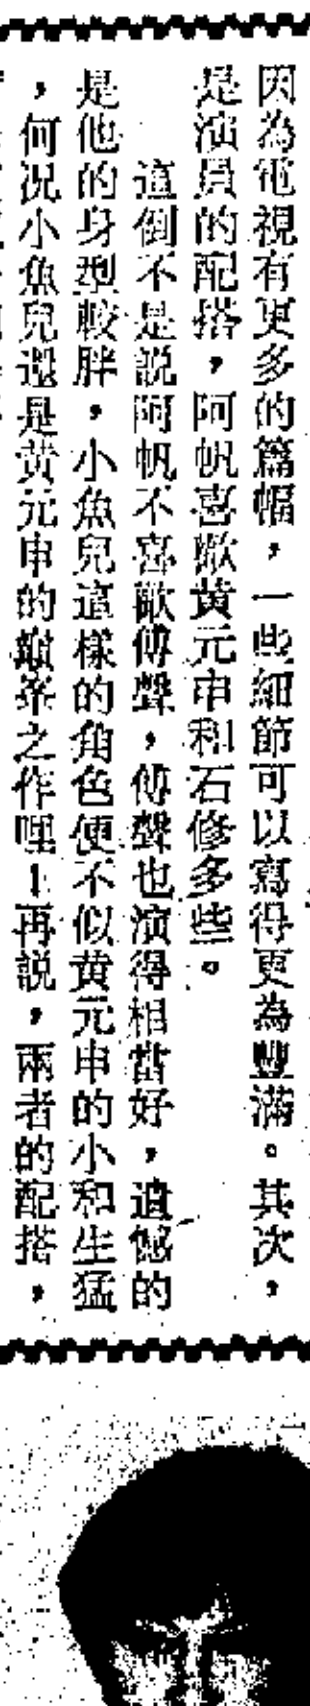 因為電視有更多的篇幅，一些細節可以寫得更為豐滿。其次，
是演員的配搭，阿帆喜歡黃元申和石修多些。
這倒不是說阿帆不喜歡傅聲，傅聲也演得相當好，遺憾的
是他的身型較胖，小魚兒這樣的角色便不似黃元申的小和生猛
，何況小魚兒還是黃元申的顛峯之作哩！再説，兩者的配搭，